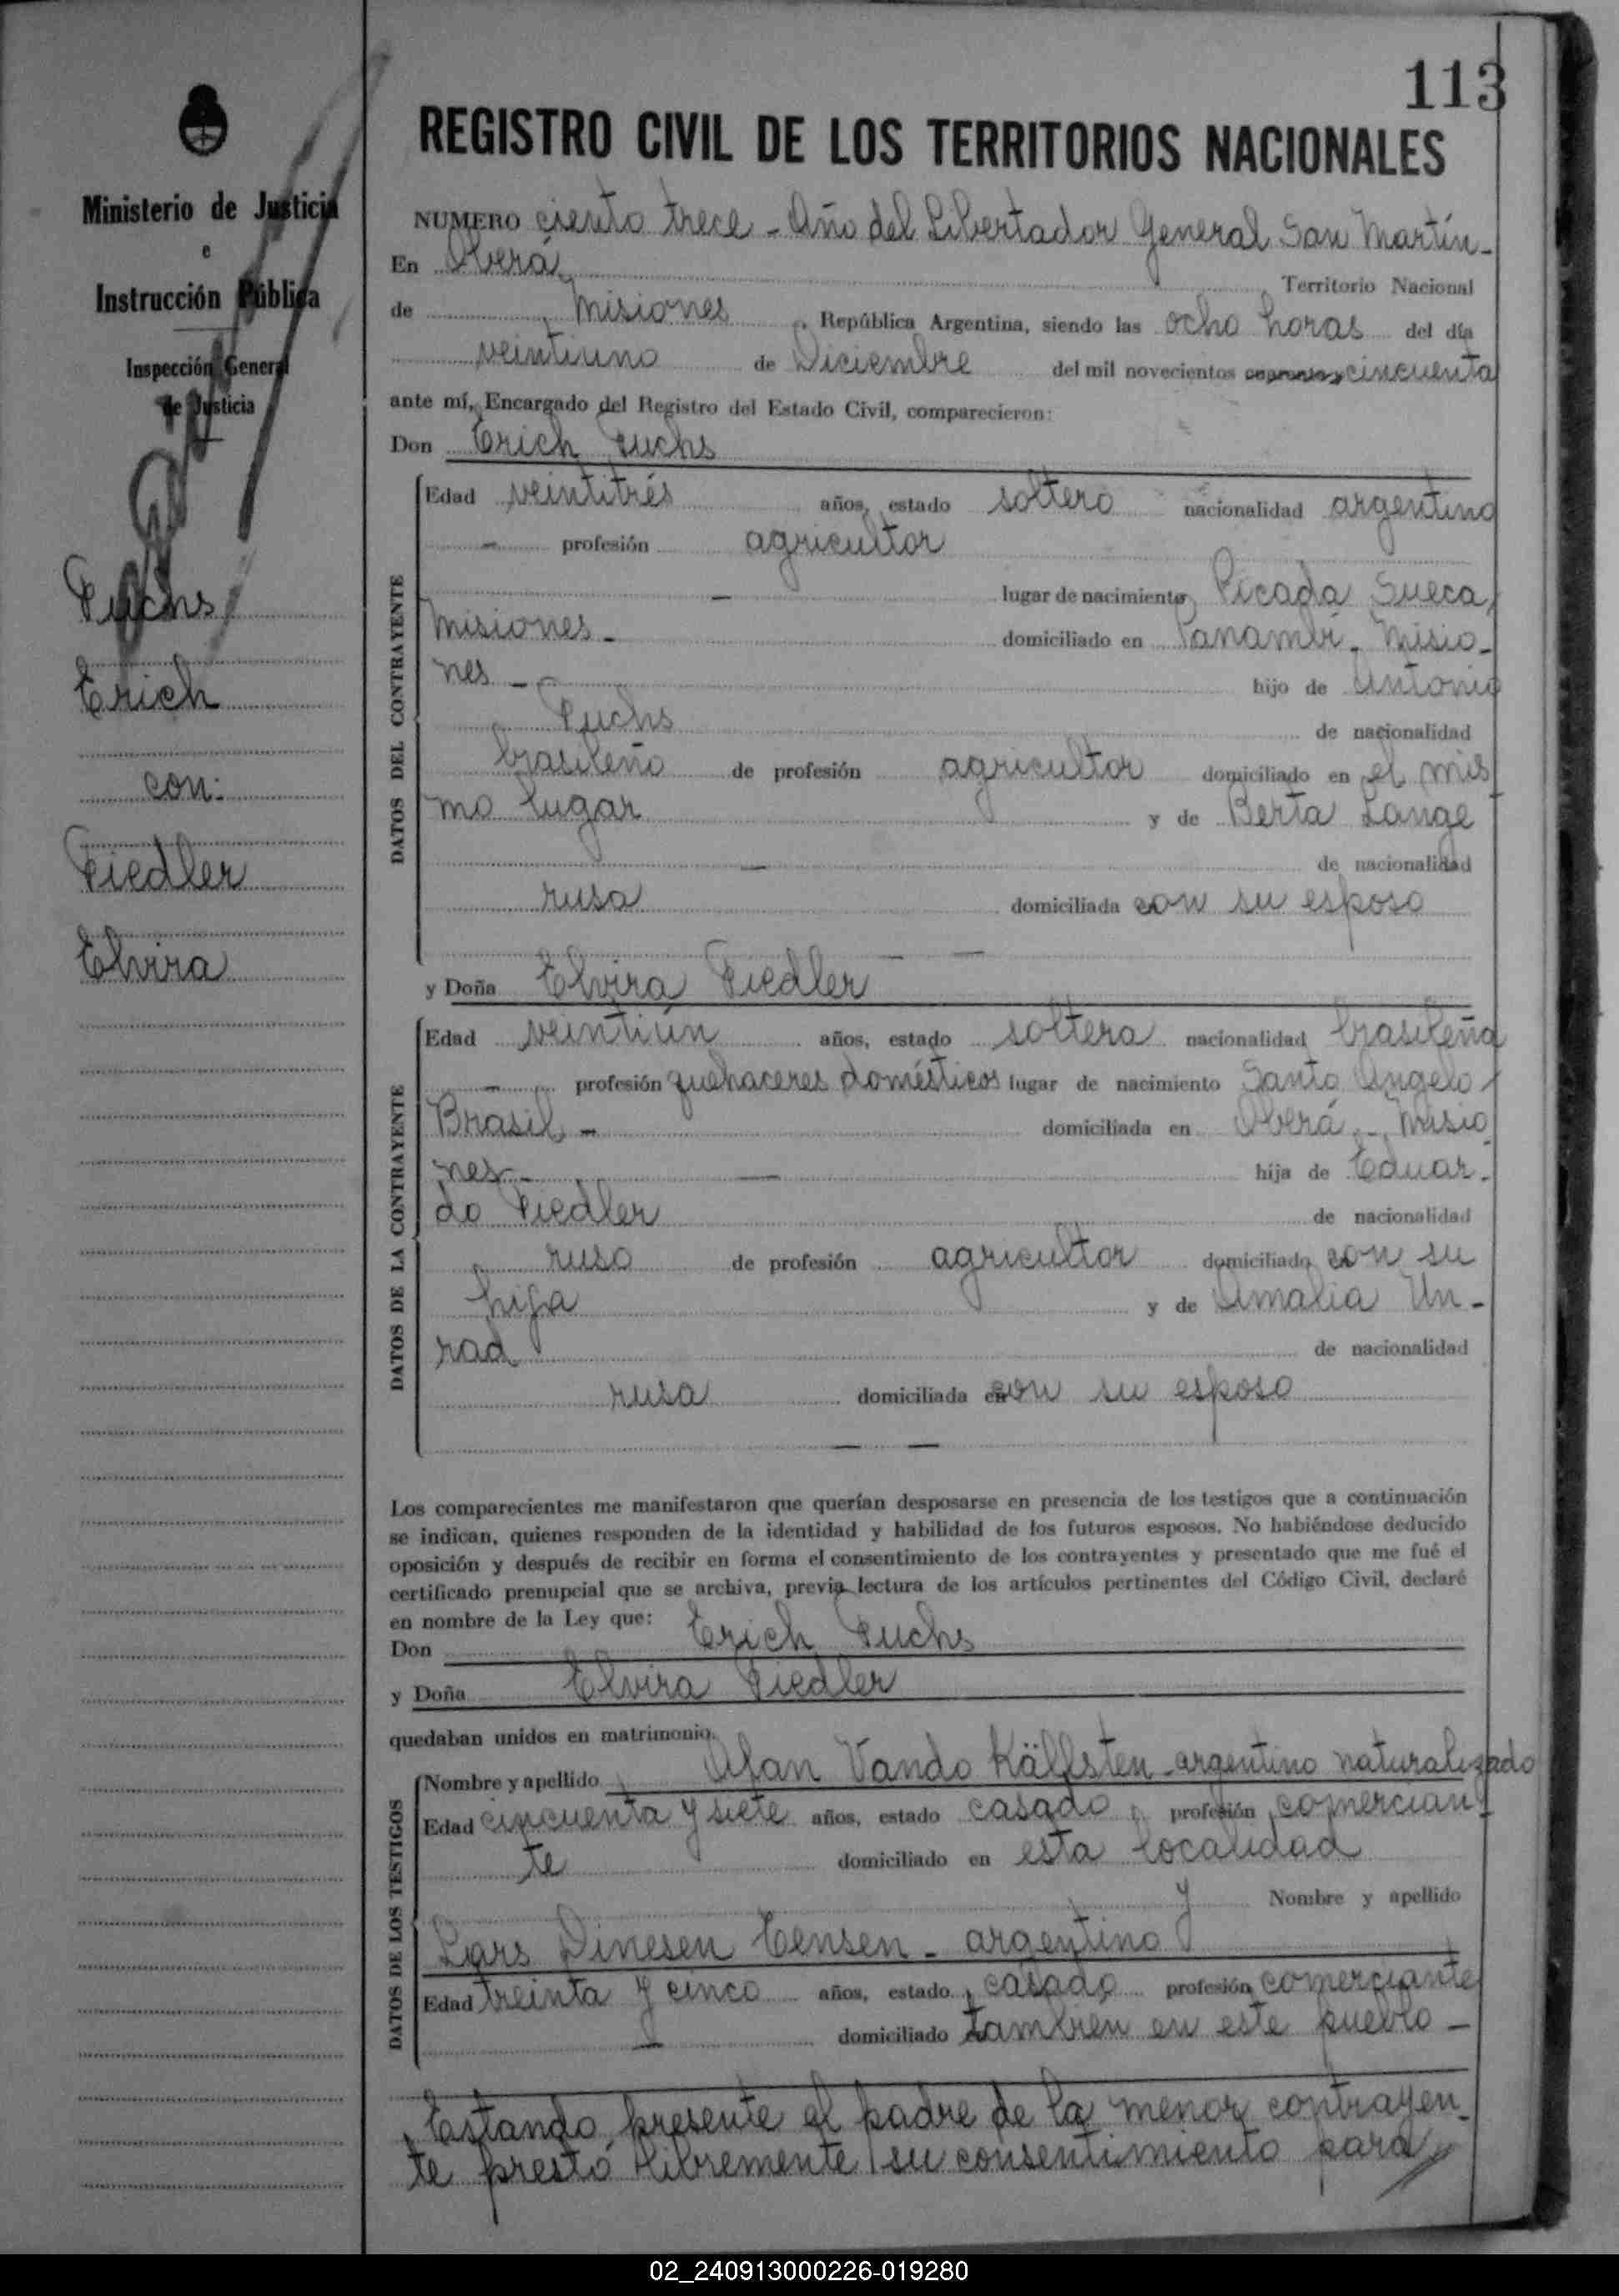 113
Ministerio de Justicia
e
Instrucción Pública
Inspección General
de Justicia
Fuchs
Erich
con:
Fiedler
Elvira
REGISTRO CIVIL DE LOS TERRITORIOS NACIONALES
NUMERO ciento trece - Año del Libertador General San Martín -
En Oberá, Territorio Nacional
de Misiones, República Argentina, siendo las ocho horas del día
veintiuno de Diciembre del mil novecientos cincuenta
ante mí, Encargado del Registro del Estado Civil, comparecieron:
Don Erich Fuchs
DATOS DEL CONTRAYENTE
Edad veintitrés años, estado soltero nacionalidad argentino
- profesión agricultor
- lugar de nacimiento Picada Sueca,
Misiones - domiciliado en Panambí - Misio-
nes - hijo de Antonio
Fuchs de nacionalidad
brasileño de profesión agricultor domiciliado en el mis
mo lugar y de Berta Lange
- de nacionalidad
rusa domiciliada con su esposo
y Doña Elvira Fiedler
DATOS DE LA CONTRAYENTE
Edad veintiún años, estado soltera nacionalidad brasileña
- profesión quehaceres domésticos lugar de nacimiento Santo Angelo,
Brasil - domiciliada en Oberá - Misio
nes - hija de Eduar-
do Fiedler de nacionalidad
ruso de profesión agricultor domiciliado con su
hija y de Amalia Un-
rad de nacionalidad
rusa domiciliada con su esposo
Los comparecientes me manifestaron que querían desposarse en presencia de los testigos que a continuación
se indican, quienes responden de la identidad y habilidad de los futuros esposos. No habiéndose deducido
oposición y después de recibir en forma el consentimiento de los contrayentes y presentado que me fué el
certificado prenupcial que se archiva, previa lectura de los artículos pertinentes del Código Civil, declaré
en nombre de la Ley que:
Don Erich Fuchs
y Doña Elvira Fiedler
quedaban unidos en matrimonio.
DATOS DE LOS TESTIGOS
Nombre y apellido Vando Källsten - argentino naturalizado
Edad cincuenta y siete años, estado casado, profesión comercian-
te domiciliado en esta localidad
y Nombre y apellido
Lars Dinesen - argentino
Edad treinta y cinco años, estado casado profesión comerciante
- domiciliado también en este pueblo -
Estando presente el padre de la menor contrayen-
te prestó libremente su consentimiento para
02_240913000226-019280